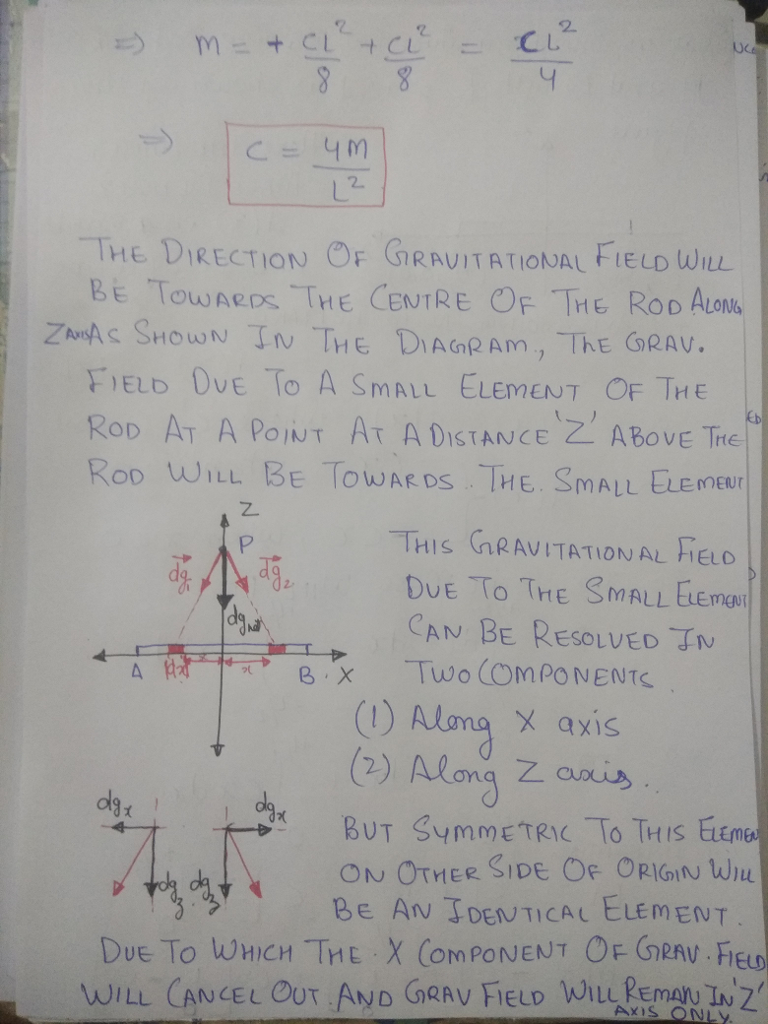 => M = + CL²/8 + CL²/8 = CL²/4
=> C = 4M/L²
THE DIRECTION OF GRAVITATIONAL FIELD WILL
BE TOWARDS THE CENTRE OF THE ROD ALONG
Z AXIS AS SHOWN IN THE DIAGRAM, THE GRAV.
FIELD DUE TO A SMALL ELEMENT OF THE
ROD AT A POINT AT A DISTANCE 'Z' ABOVE THE
ROD WILL BE TOWARDS. THE. SMALL ELEMENT
Z
P
dg₁
dg₂
dg net
A
dx
x
x
B
X
THIS GRAVITATIONAL FIELD
DUE TO THE SMALL ELEMENT
CAN BE RESOLVED IN
TWO COMPONENTS.
(1) Along X axis
(2) Along Z axis.
dgx
dgx
dgz
dgz
BUT SYMMETRIC TO THIS ELEMEN
ON OTHER SIDE OF ORIGIN WILL
BE AN IDENTICAL ELEMENT.
DUE TO WHICH THE X COMPONENT OF GRAV. FIELD
WILL CANCEL OUT. AND GRAV FIELD WILL REMAN IN 'Z'
AXIS ONLY.